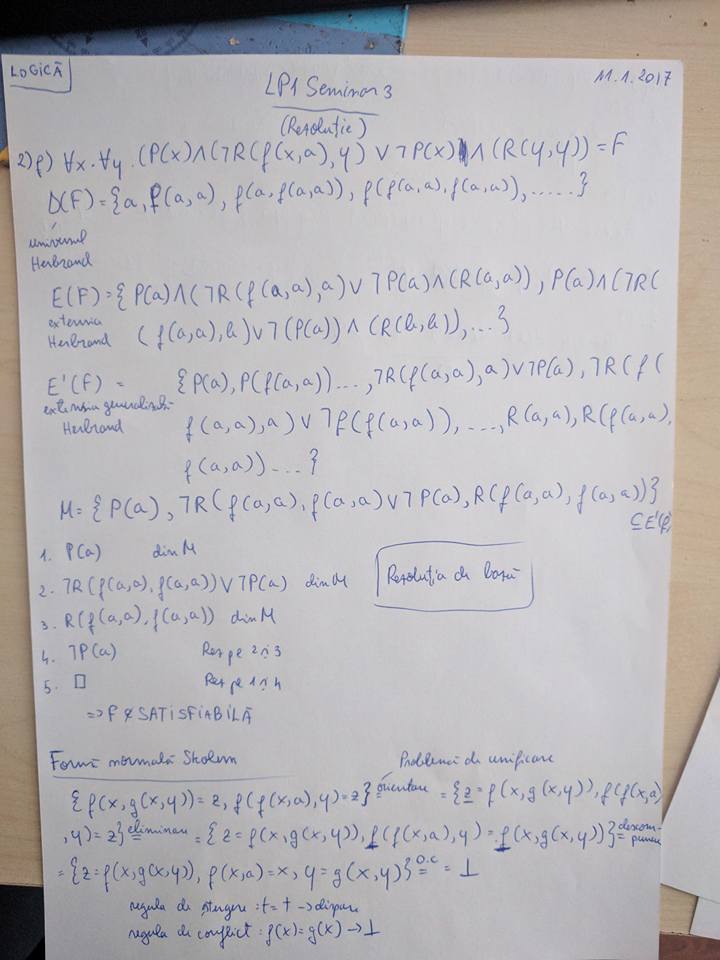 LOGICĂ
LP1 Seminar 3
11.1.2017
(Rezoluție)
2) f) ∀x.∀y.(P(x)∧(¬R(f(x,a),y)∨¬P(x)∧(R(y,y))=F
D(F)={a,f(a,a),f(a,f(a,a)),f(f(a,a),f(a,a)),.....}
universul
Herbrand
E(F)={P(a)∧(¬R(f(a,a),a)∨¬P(a)∧(R(a,a)),P(a)∧(¬R(
extensia
Herbrand
(f(a,a),b)∨¬(P(a))∧(R(b,b)),...}
E'(F)= {P(a),P(f(a,a))...,¬R(f(a,a),a)∨¬P(a),¬R(f(
extensia generalizată
Herbrand
f(a,a),a)∨¬P(f(a,a)),...,R(a,a),R(f(a,a),
f(a,a))...}
M={P(a),¬R(f(a,a),f(a,a)∨¬P(a),R(f(a,a),f(a,a))}
⊆E'(F)
1. P(a) din M
2. ¬R(f(a,a),f(a,a))∨¬P(a) din M
Rezoluția de bază
3. R(f(a,a),f(a,a)) din M
4. ¬P(a) Rez pe 2 și 3
5. □ Rez pe 1 și 4
=> F e SATISFIABILĂ
Formă normală Skolem
Problemă de unificare
{f(x,g(x,y))=z,f(f(x,a),y)=z} orientare = {z=f(x,g(x,y)),f(f(x,a)
,y)=z} eliminare = {z=f(x,g(x,y)),f(f(x,a),y)=f(x,g(x,y))} descompunere
={z=f(x,g(x,y)),f(x,a)=x,y=g(x,y)} O.C = ⊥
regula de ștergere: t=t → dispare
regula de conflict: f(x)=g(x) → ⊥